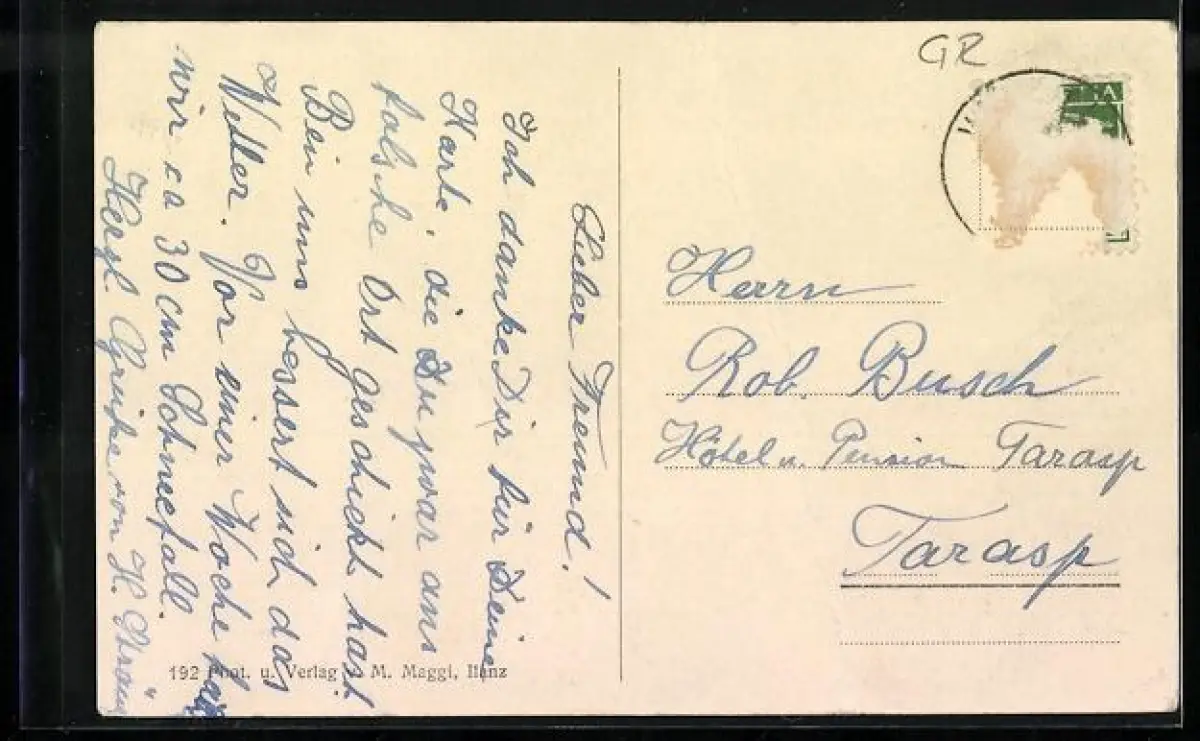 Lieber Freund!
Ich danke Dir für Deine
Karte, die Du zwar ans
falsche Ort geschickt hast
Bein uns bessert sich das
Wetter. Vor einer Woche
wir ca 30 cm Schneefall.
Herzl. Grüsse von H.
192 Phot. u. Verlag v. M. Maggi, Ilanz
GR
Herrn
Rob. Busch
Hôtel u. Pension Tarasp
Tarasp